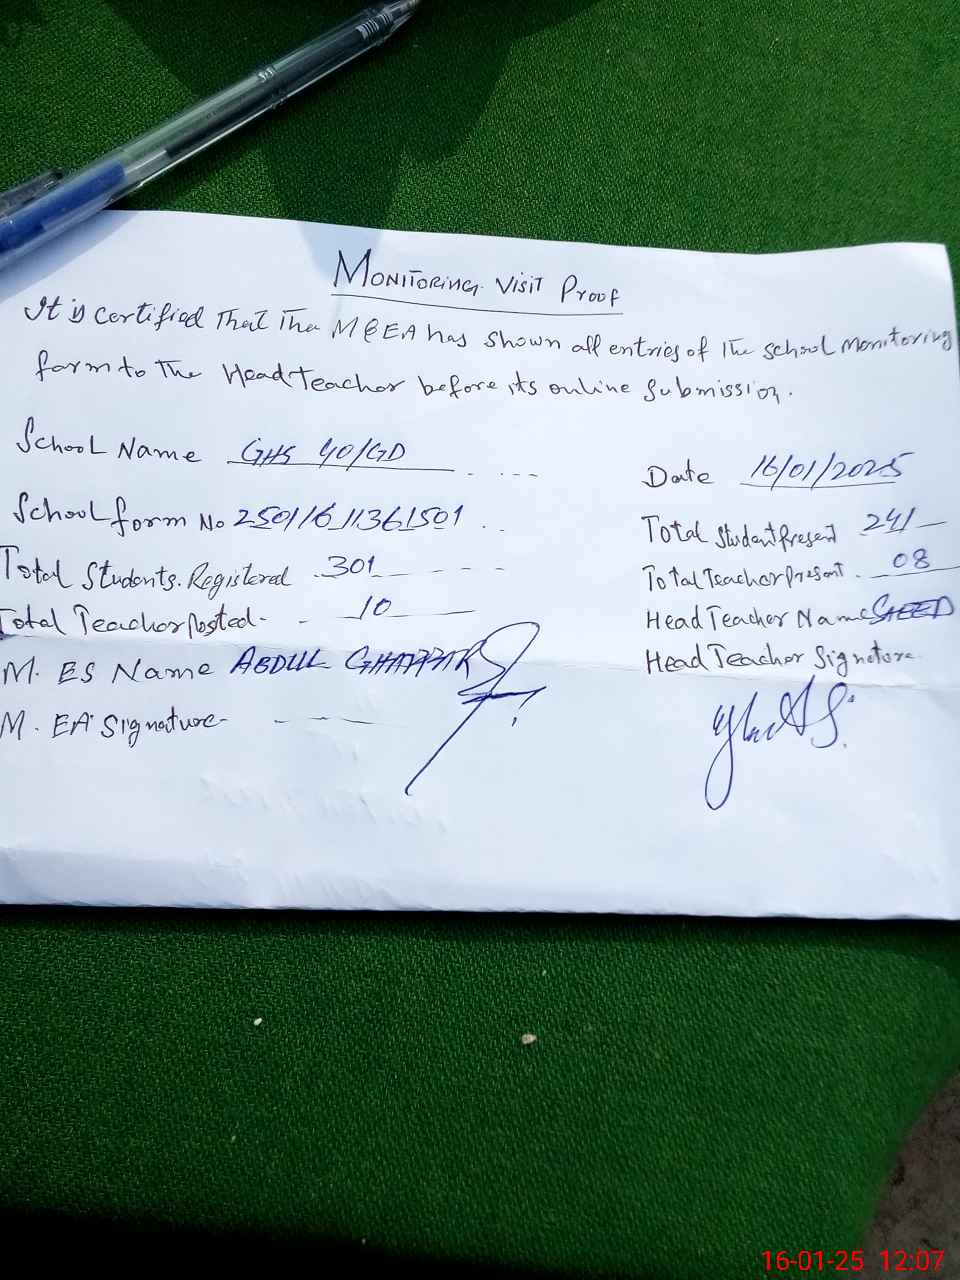 MONITORING VISIT PROOF
It is certified That The MEEA has shown all entries of The School Monitoring
form to The Head Teacher before its online Submission.
School Name GHS 40/GD
Date 16/01/2025
School form No 250116_11361501
Total Student Present 241
Total Students. Registered 301
Total Teacher Present 08
Total Teacher Posted 10
Head Teacher Name SAEED
M. ES Name ABDUL GHAFFAR
Head Teacher Signature
M. EA Signature
16-01-25 12:07